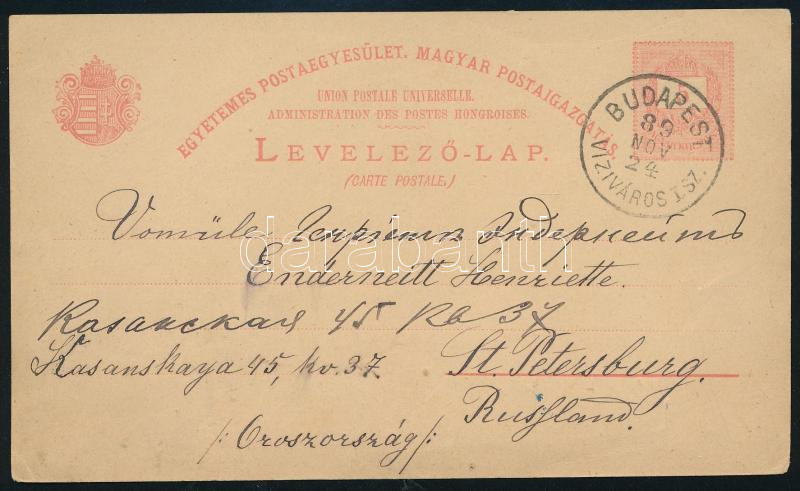 EGYETEMES POSTAEGYESÜLET. MAGYAR POSTAIGAZGATÁS.
UNION POSTALE UNIVERSELLE.
ADMINISTRATION DES POSTES HONGROISES.
LEVELEZŐ-LAP.
(CARTE POSTALE.)
BUDAPEST
89
NOV
24
VIZIVÁROS I SZ.
Генріетт Эндернеитъ
Enderneitt Henriette.
darabanth
Казанская 45 Кв 37
Kasanskaya 45, kv. 37.
St. Petersburg.
Russland.
/: Oroszország :/